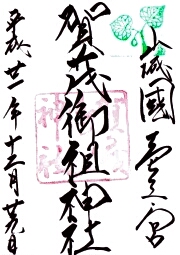 山城國一之宮
賀茂御祖神社
平成廿一年十二月廿九日